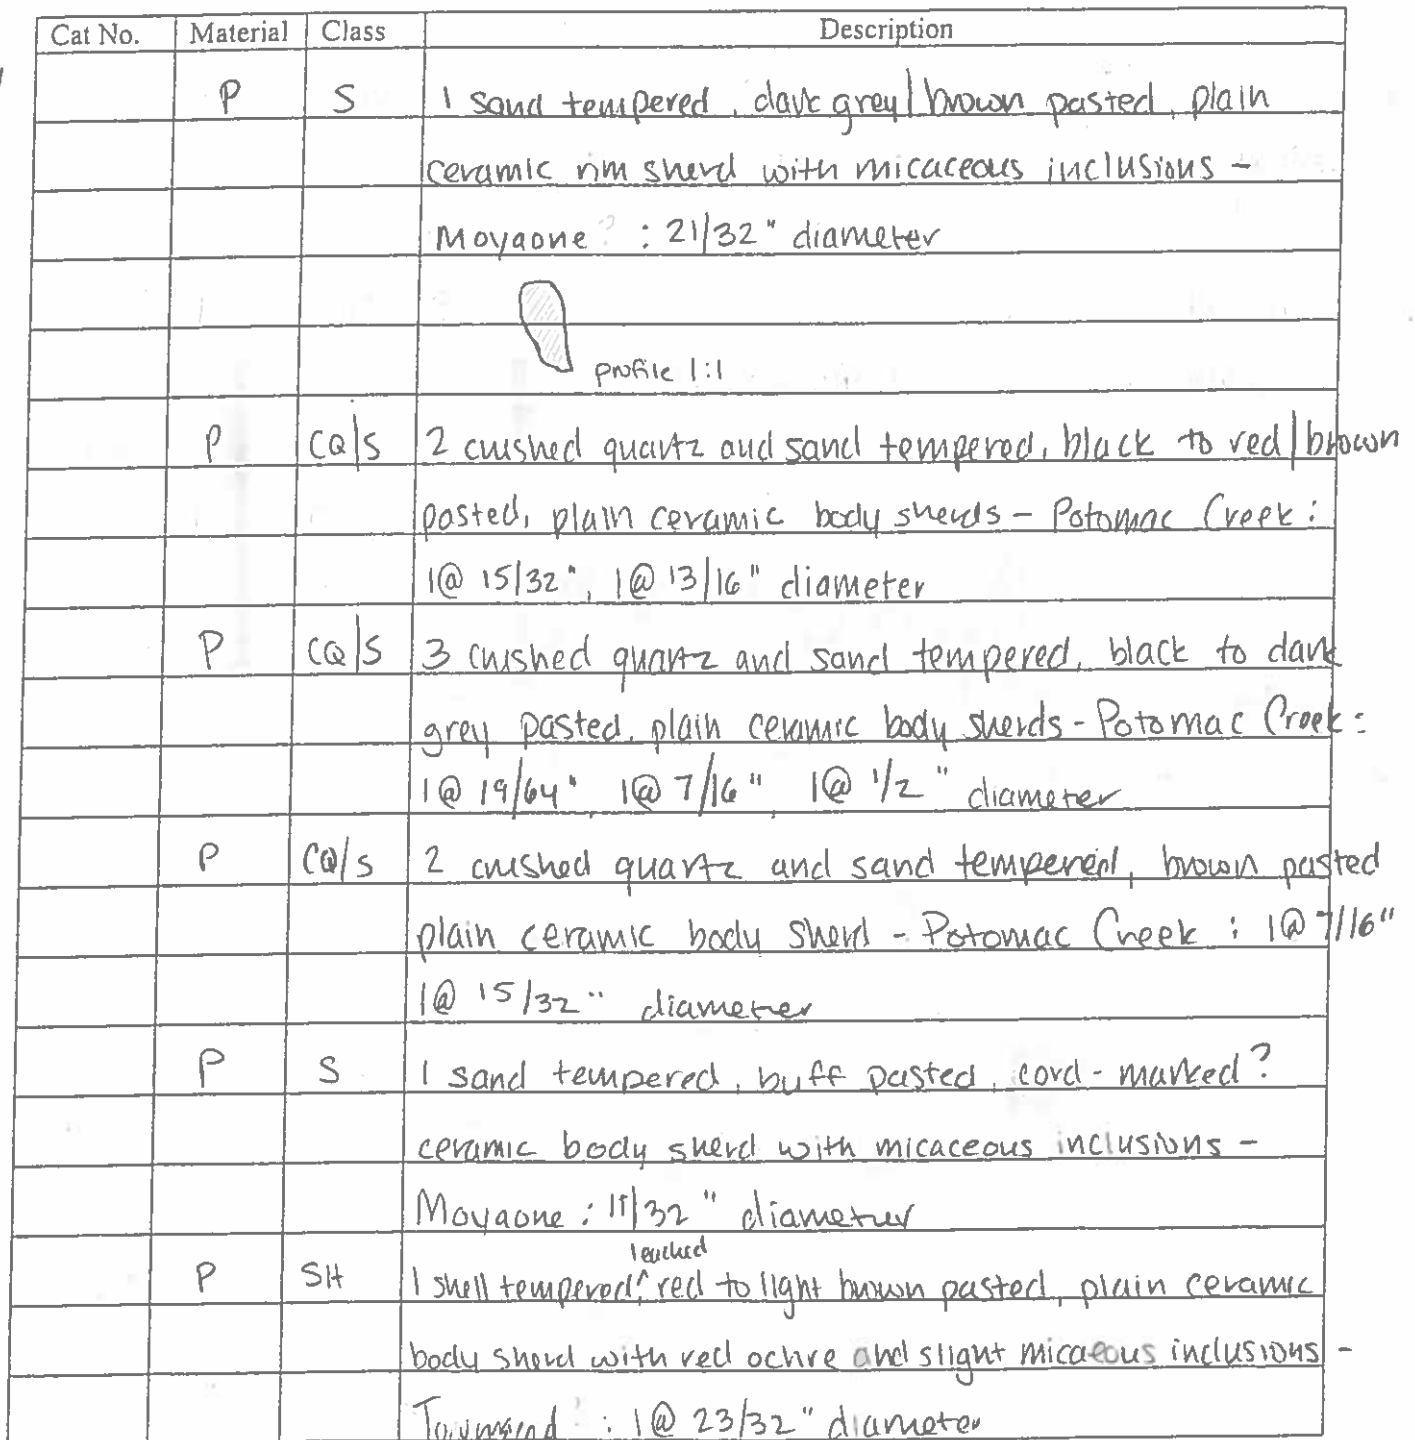 Cat No. Material Class Description
P S 1 sand tempered, dark grey/brown pasted, plain
ceramic rim sherd with micaceous inclusions -
Moyaone ? : 21/32" diameter
profile 1:1
P CQ/S 2 crushed quartz and sand tempered, black to red/brown
pasted, plain ceramic body sherds - Potomac Creek :
1@ 15/32", 1@ 13/16" diameter
P CQ/S 3 crushed quartz and sand tempered, black to dark
grey pasted, plain ceramic body sherds - Potomac Creek :
1@ 19/64", 1@ 7/16", 1@ 1/2" diameter
P CQ/S 2 crushed quartz and sand tempered, brown pasted
plain ceramic body sherd - Potomac Creek : 1@ 7/16"
1@ 15/32" diameter
P S 1 sand tempered, buff pasted, cord-marked?
ceramic body sherd with micaceous inclusions -
Moyaone : 11/32" diameter
leached
P SH 1 shell tempered,^ red to light brown pasted, plain ceramic
body sherd with red ochre and slight micaeous inclusions -
Townsend ? : 1@ 23/32" diameter